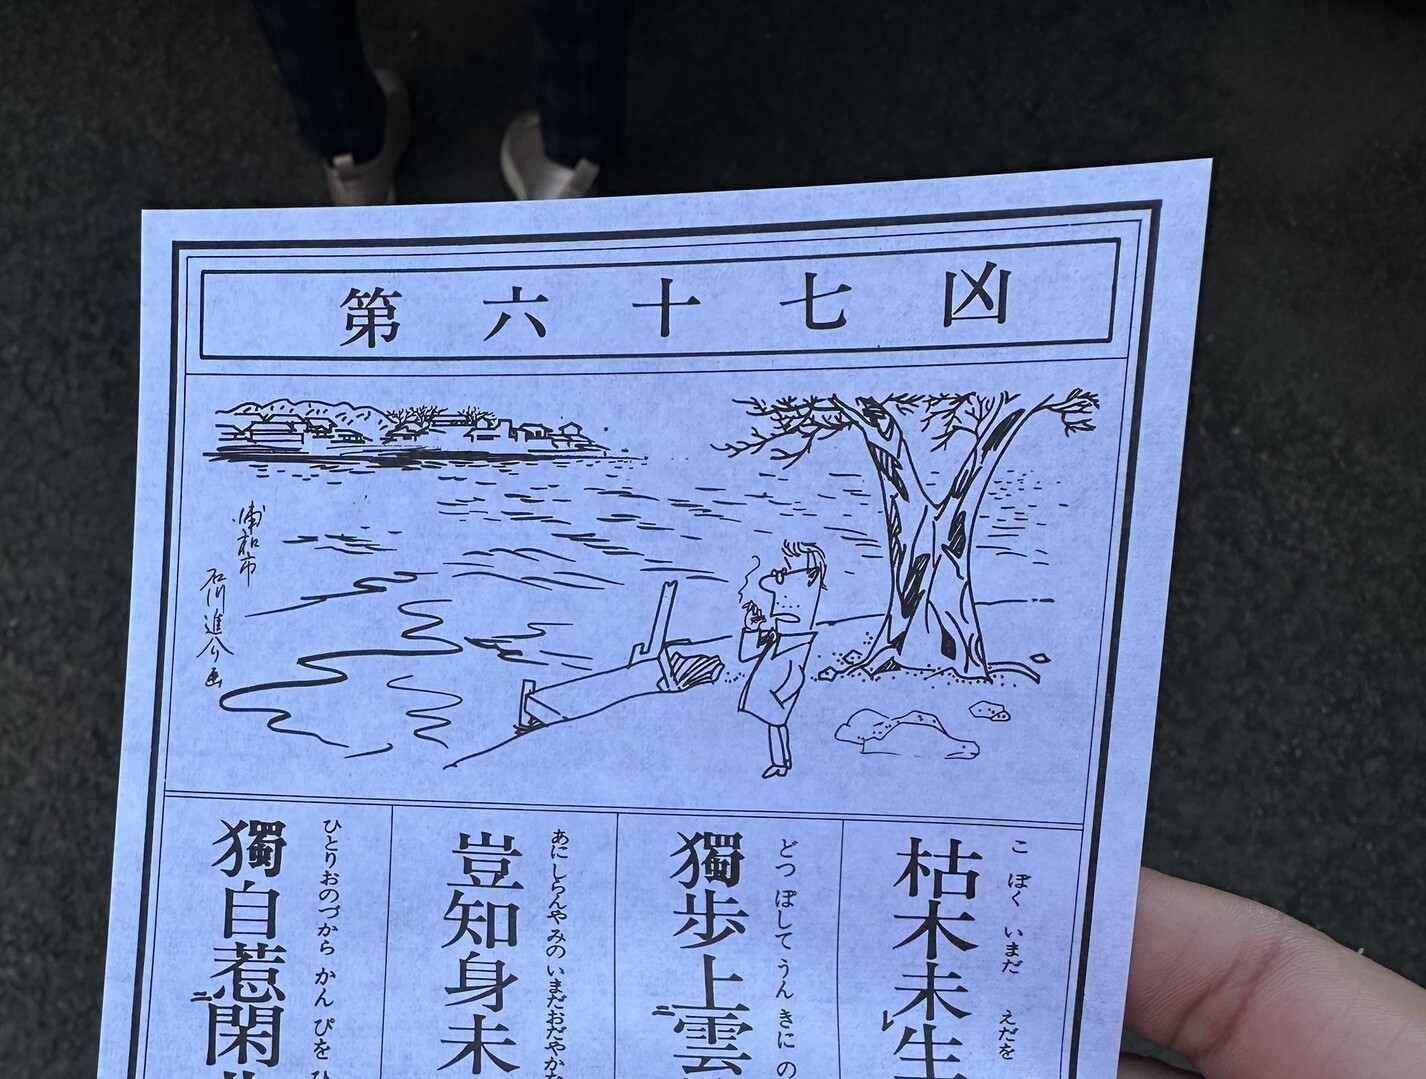 第六十七凶
浦和市
石川進公画
枯木未生
こぼく いまだ えだを
獨歩上雲
どつ ぽして うん きに の
豈知身未
あに しらんや みの いまだおだやかな
獨自惹閑
ひとりおのづから かん ぴを ひ